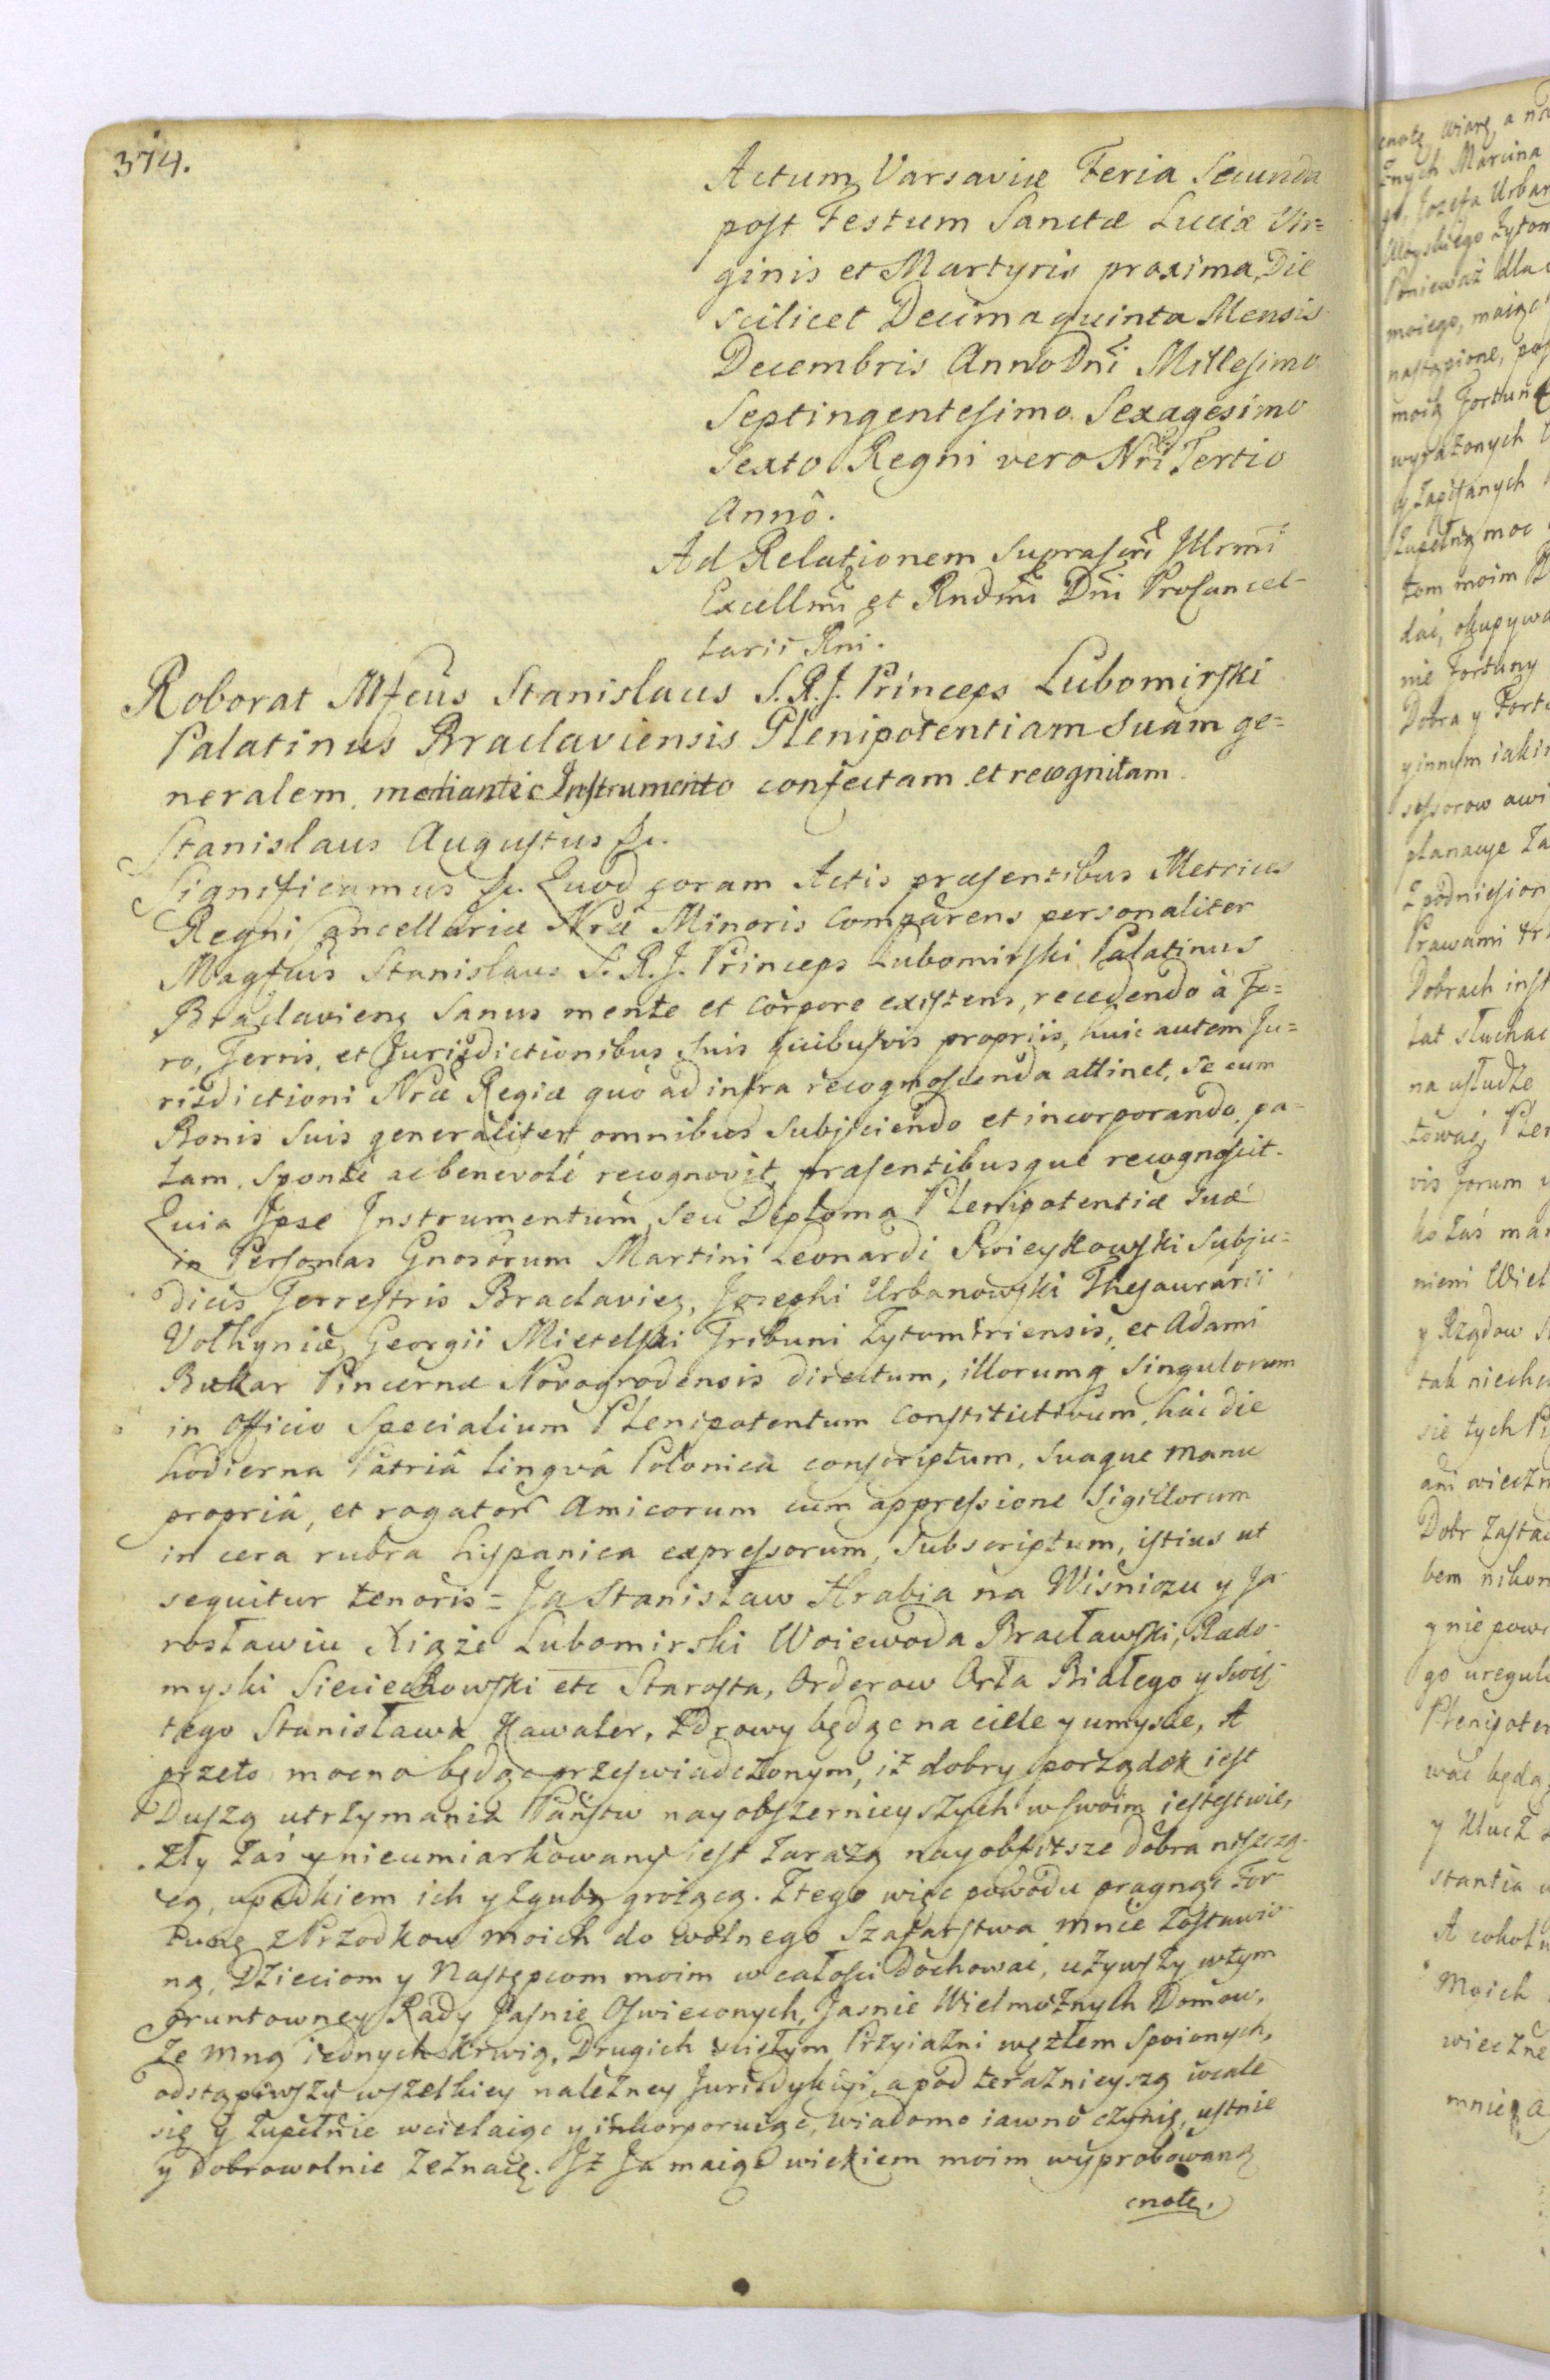 374.
Actum Varsaviæ Feria Secunda
post Festum Sanctæ Luciæ Vir=
ginis et Martyris proxima, Die
scilicet Decima quinta Mensis
Decembris Anno Dni Millesimo
Septingentesimo Sexagesimo
Sexto Regni vero Nri Tertio
Annô.
Ad Relationem Suprascri Illrmi
Excellmi et Rndmi Dni Procancel-
larii Rni.
Roborat Mfcus Stanislaus S.R.J. Princeps Lubomirski
Palatinus Braclaviensis Plenipotentiam Suam ge=
neralem, mediante Instrumento confectam et recognitam
Stanislaus Augustus &c.
Significamus &c. Quod coram Actis præsentibus Metrices
Regni Cancellariæ Nræ Minoris Comparens personaliter
Magfcus Stanislaus S.R.J. Princeps Lubomirski Palatinus
Braclaviens Sanus mente et Corpore existens, recedendo à Fo=
ro, Terris, et Jurisdictionibus Suis quibusvis propriis, huic autem Ju=
risdictioni Nræ Regiæ quò ad infra recognoscenda attinet, Se cum
Bonis Suis generaliter omnibus Subjiciendo et incorporando, pa=
lam, Sponte ac benevolé recognovit, præsentibusque recognoscit.
Quia Ipse Instrumentum, Seu Diploma Plenipotentiæ Suæ
in Personas Gnosorum Martini Leonardi Swieykowski Subju=
dicis Terrestris Braclavien, Josephi Urbanowski Thesaurarii
Volhyniæ, Georgii Mietelski Tribuni Zytomiriensis, et Adami
Bukar Pincernæ Novogrodensis directum, illorumq Singulorum
in Officio Specialium Plenipotentum Constitutivum, hâc die
hodierna Patriâ Lingvâ Polonica conscriptum, Suaque manu
propriâ, et rogator Amicorum cum appressione Sigillorum
in cera rubra hispanica expressorum, Subscriptum, istius ut
sequitur tenoris = Ja Stanisław Hrabia na Wiśniczu y Ja-
rosławiu Xiąże Lubomirski Woiewoda Bracławski, Rado-
myski Sieciechowski etc Starosta, Orderow Orła Białego y Swię-
tego Stanisława Kawaler, Zdrowy będąc na ciele y umysle, A
przeto mocno będąc przeswiadczonym, iż dobry porządek iest
Duszą utrzymania Państw nayobszernieyszych w swoim iestestwie,
Zły zaś y nieumiarkowany iest zarazą nayobfitsze dobra niszczą-
cą, upadkiem ich y zgubą grożącą. Z tego więc powodu pragnąc For-
tunę z Przodkow moich do wolnego Szafarstwa mnie zostawio-
ną, Dzieciom y Następcom moim w całości dochować, używszy w tym
gruntowney Rady Jasnie Oswieconych, Jasnie Wielmożnych Domow,
Ze mną iednych krwią, Drugich ścisłym Przyiaźni węzłem Spoionych,
odstąpiwszy wszelkiey należney Jurizdykcyi, a pod teraznieyszą wcale
się y zupełnie wcielaiąc y inkorporuiąc, wiadomo iawno czynię, ustnie
y dobrowolnie zeznaię. Iż Ja maiąc wiekiem moim wyprobowaną
cnotę,
cnotę wiarę, a
Marcina
go, Jozefa Urban
Zytom
Ponieważ dla
moiego, maiąc
nastąpione,
moią Fortunę
wyrażonych
y zapisanych
zupełną moc
tom moim
dać, okupywa
nie Fortuny
Dobra y Fort
y innym iaki
sessorow
Z podniesion
Prawami
Dobrach inst
słuchac
na usłudze
tować, Plen
vis forum
ko zaś
Wiel
y Rządow
tak niech
się tych
ani wieczn
Dobr zasta
bem
y nie pow
go uregul
Plenipoten
wać będą
y Klucz
stantia
A cokol
Moich
wieczne
mnie a